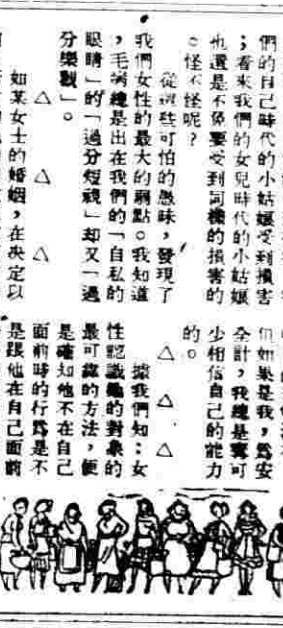 們的自己時代的小姑孃受到損害
；看來我們的女兒時代的小姑孃
也還是不免要受到同樣的損害的
。怪不怪呢？
從這些可怕的愚昧，發現了
我們女性的最大的弱點。我知道
，毛病總是出在我們的「自私的
眼睛」的「過分短視」却又「過
分樂觀」。
△ △ △
如某女士的婚姻，在決定以
但如果是我，爲安
全計，我總是寧可
少相信自己的能力
的。
△ △ △
據我們知：女
性認識她的對象的
最可靠的方法，便
是確知他不在自己
面前時的行爲是不
是跟他在自己面前